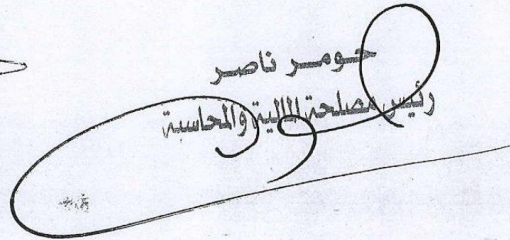 حومر ناصر
رئيس مصلحة المالية والمحاسبة